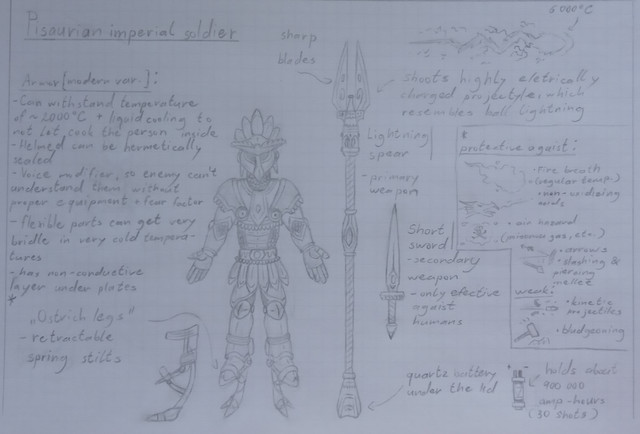 Pisaurian imperial soldier
Armor [modern var.]:
- Can withstand temperature
of ~ 2000°C + liquid cooling to
not let cook the person inside
- Helmed can be hermetically
sealed
- Voice modifier, so enemy can't
understand them without
proper equipment + fear factor
- flexible parts can get very
bridle in very cold tempera-
tures
- has non-conductive
layer under plates
*
„Ostrich legs"
- retractable
spring stilts
sharp
blades
5000°C
shoots highly eletrically
charged projectyle, which
resembles ball lightning
Lightning
spear
- primary
weapon
Short
sword
- secondary
weapon
- only efective
agaist
humans
*
protective agaist:
• Fire breath
(regular temp.)
• non-oxidizing
acids
• air hazard
(poisonous gas, etc.)
• arrows
• slashing &
piercing
mellee
weak:
• kinetic
projectiles
• bludgeoning
quartz battery
under the lid
holds about
900 000
amp-hours
(30 shots)